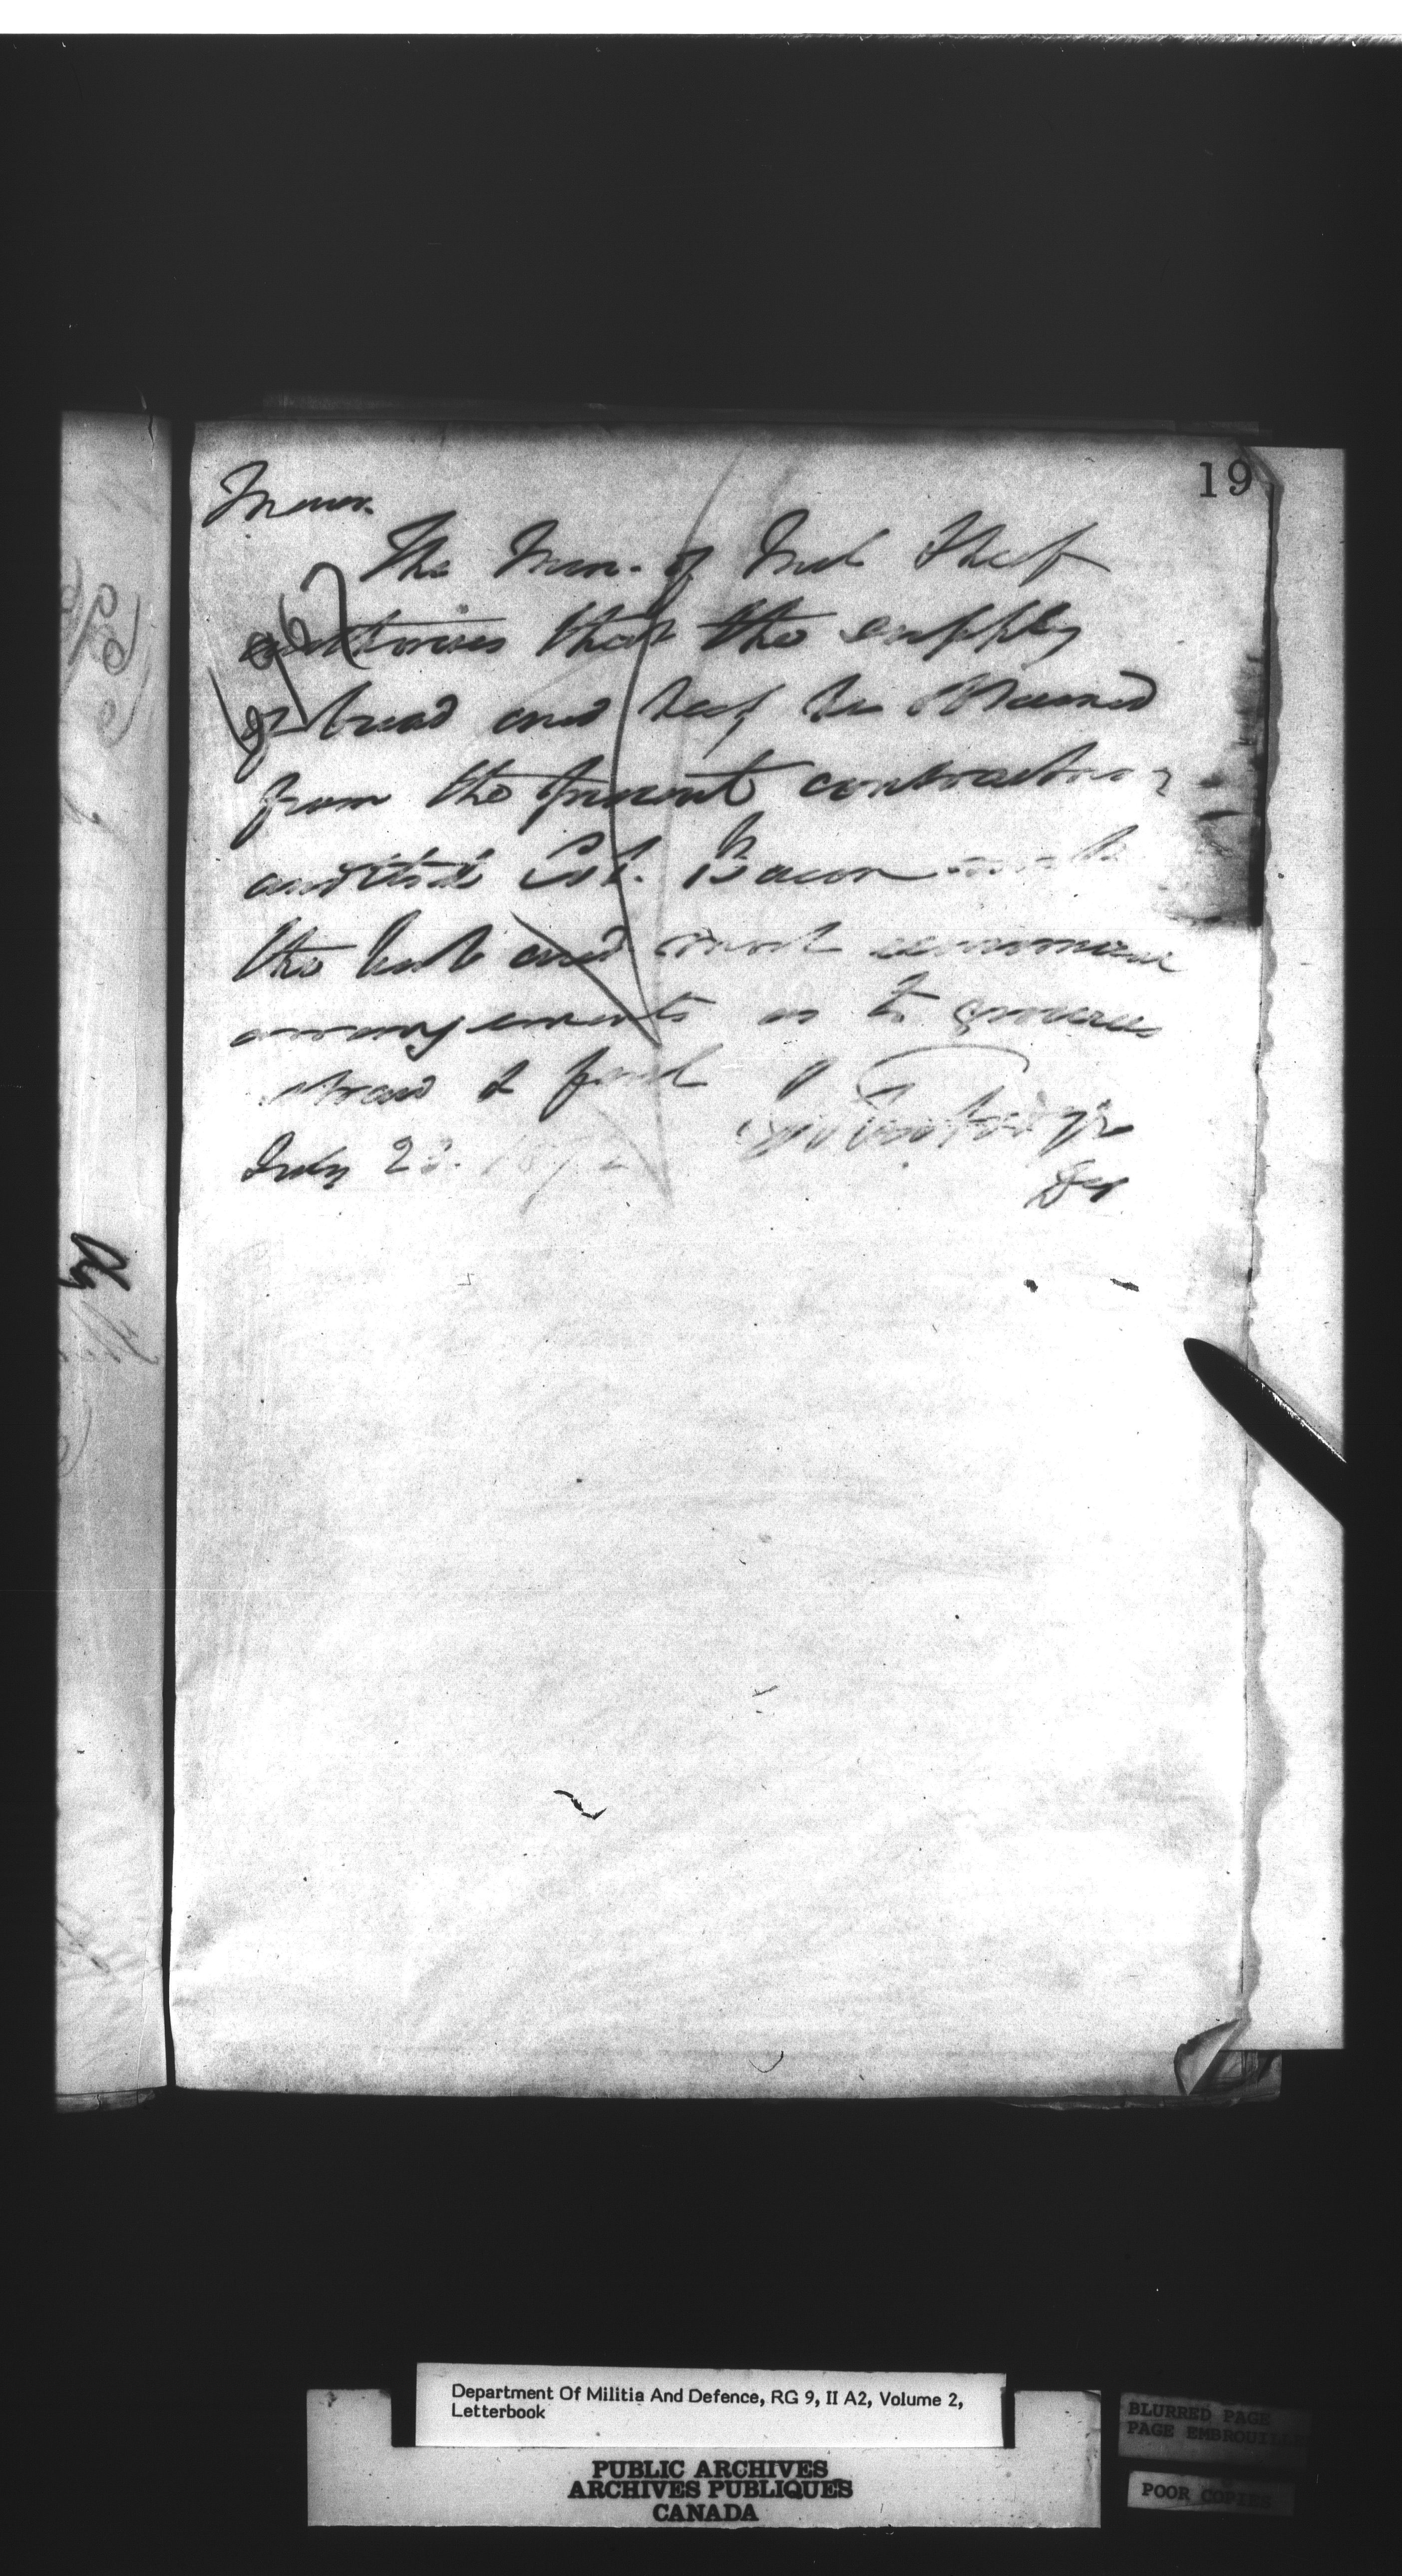 19
Memo.
The Min. of Mil &
authorises that the supply
of bread and beef be obtained
from the present contractors
and that Col. Bacon make
the best and most economical
arrangements as to
straw & fuel
July 23. 1872
Department Of Militia And Defence, RG 9, II A2, Volume 2,
Letterbook
PUBLIC ARCHIVES
ARCHIVES PUBLIQUES
CANADA
BLURRED PAGE
PAGE EMBROUILLEE
POOR COPIES